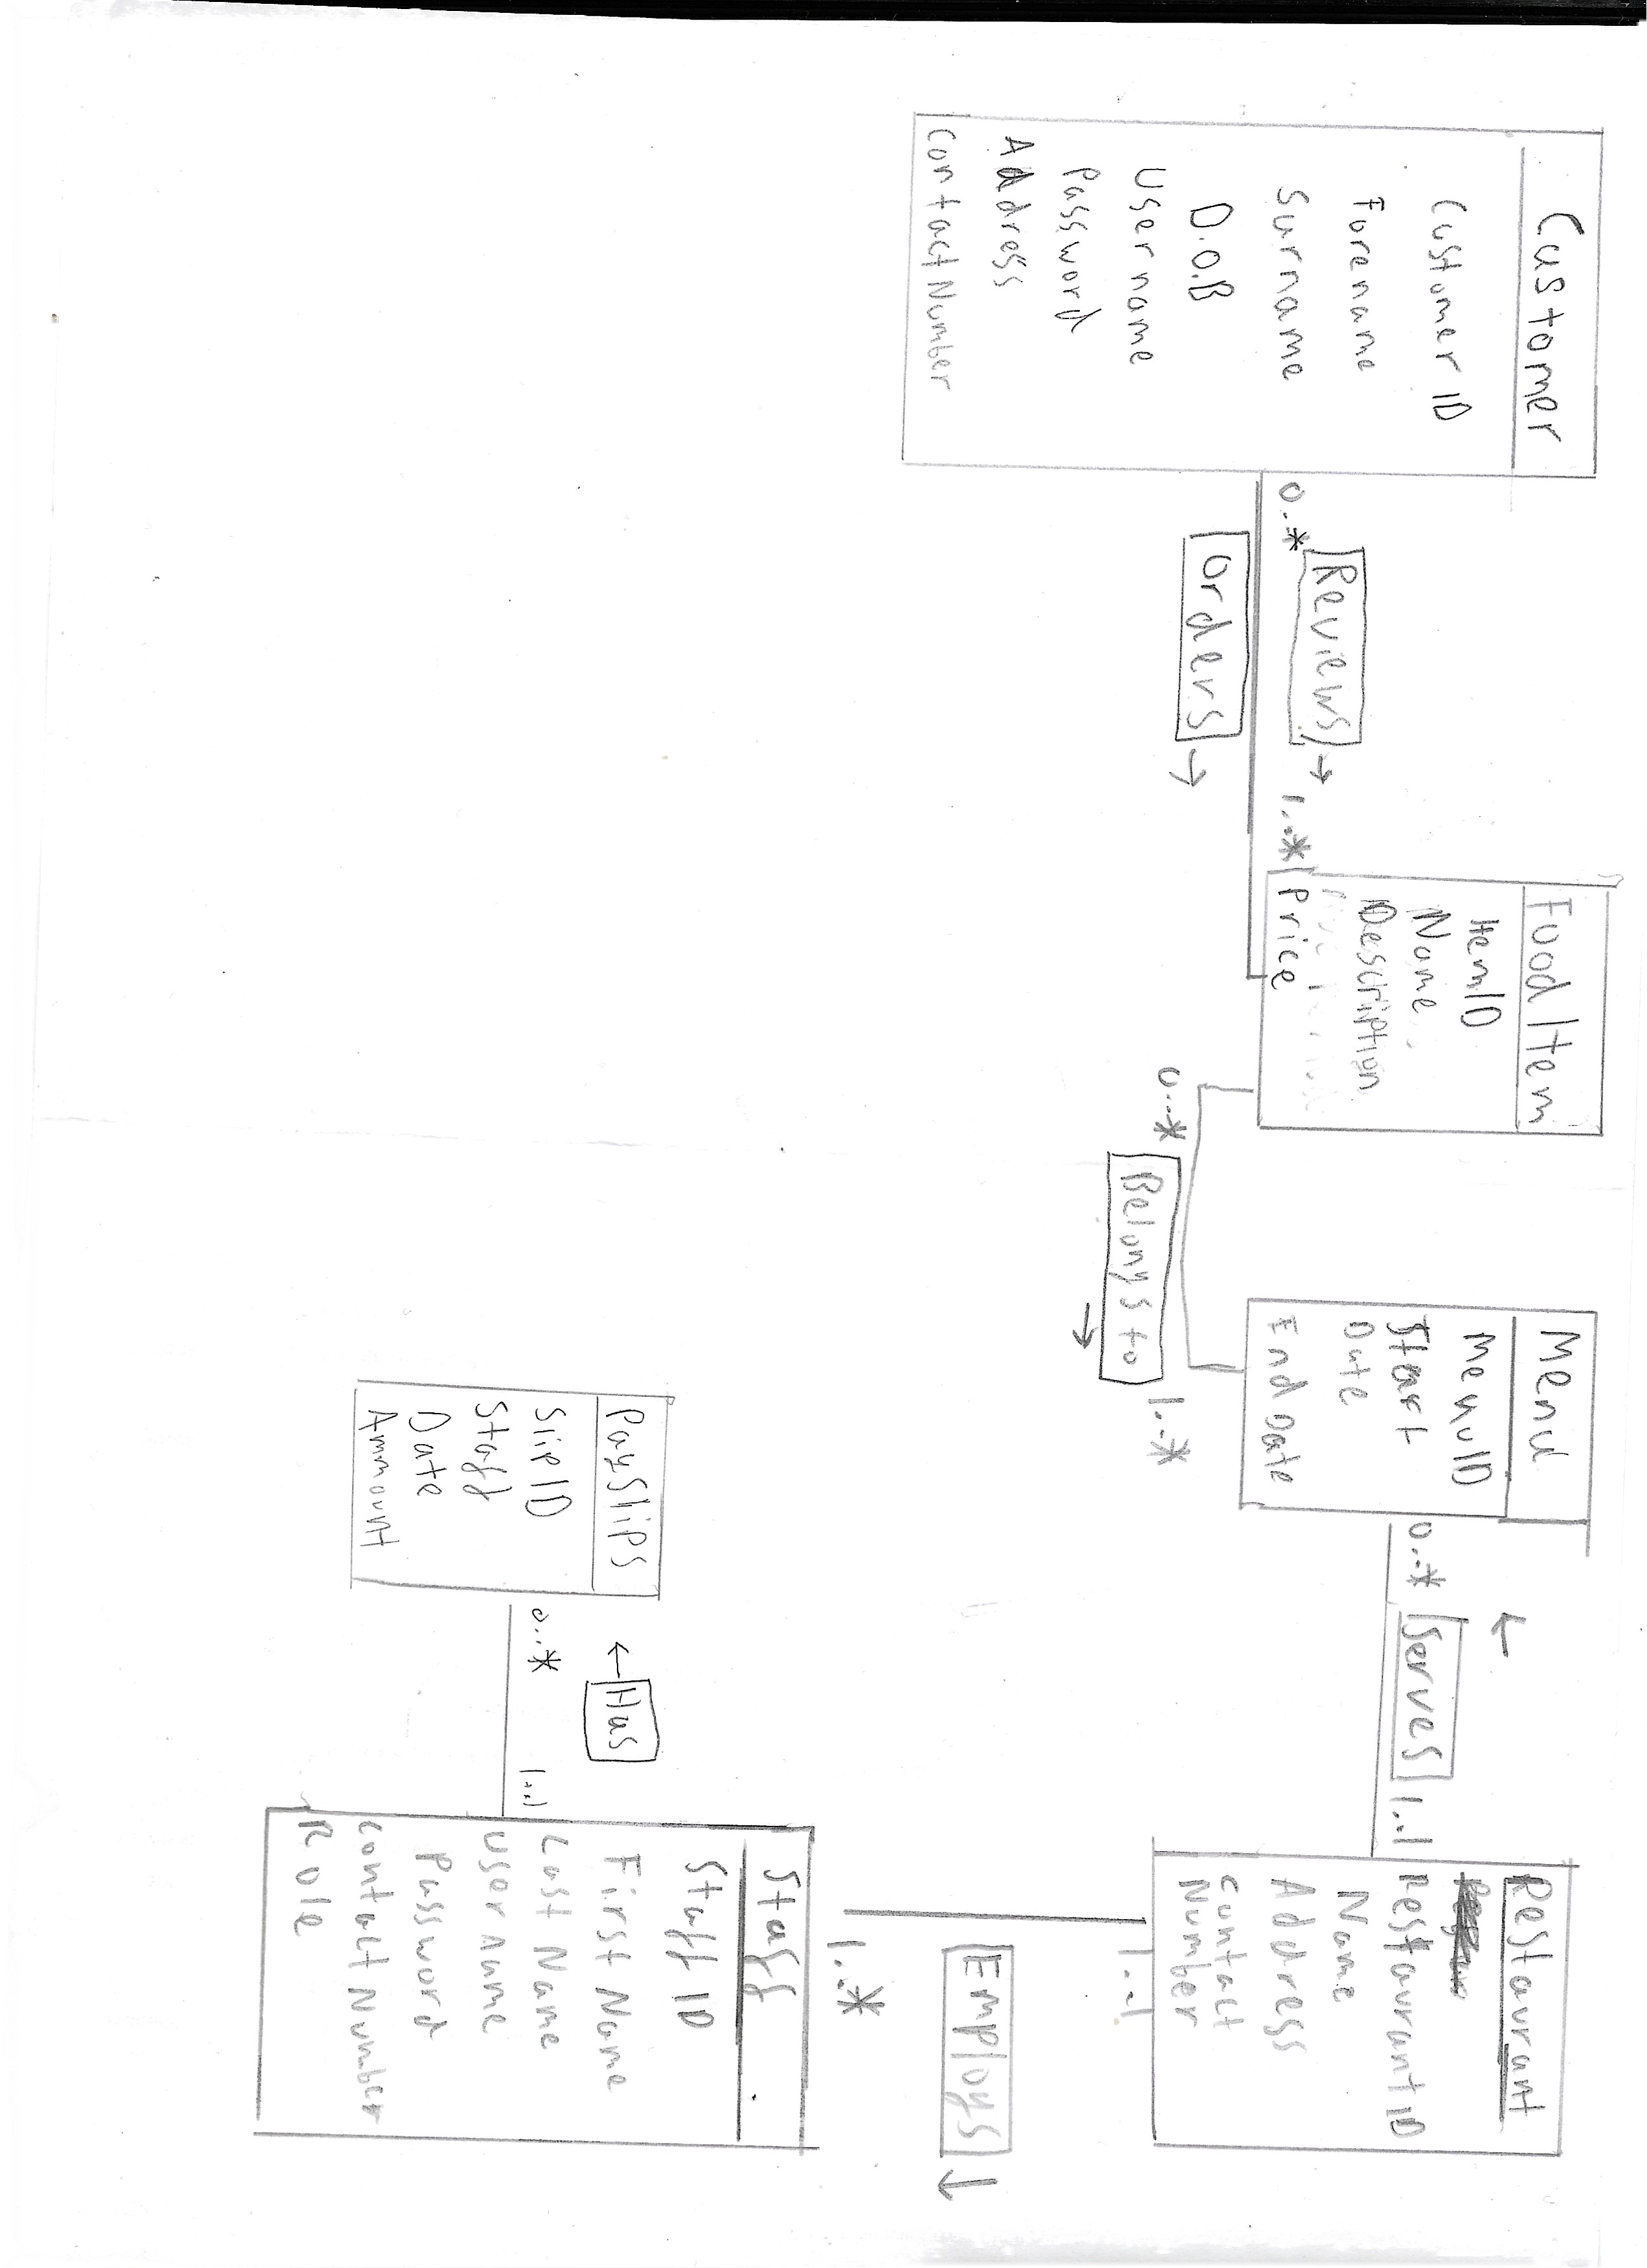 Customer
Customer ID
Forename
Surname
D.O.B
Username
Password
Address
Contact Number
0..*
Reviews →
1..*
Orders →
Food Item
ItemID
Name
Description
Price
0..*
Belongs to
→
1..*
Menu
MenuID
Start
Date
End Date
←
0..*
Serves
1..1
Restaurant
Restaurant ID
Name
Address
Contact
Number
1..1
Employs ↓
1..*
Staff
Staff ID
First Name
Last Name
Username
Password
Contact Number
Role
← Has
0..*
1..1
PaySlips
SlipID
Staff
Date
Ammount